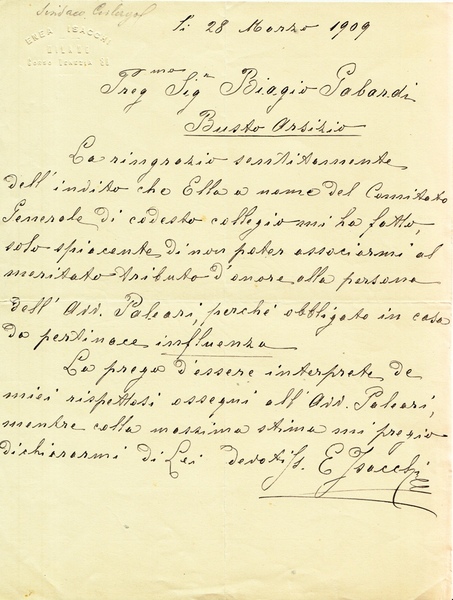 Sindaco
ENEA ISACCHI
MILANO
li 28 Marzo 1909
Preg.mo Sig.r Biagio Gabardi
Busto Arsizio
La ringrazio sentitamente
dell'indito che Ella a nome del Comitato
Generale di codesto collegio mi ha fatto
solo spiacente di non poter associarmi al
meritato tributo d'onore alla persona
dell'Avv. Paleari, perché obbligato in casa
da pertinace influenza
La prego d'essere interprete de
miei rispettosi ossequi all'Avv. Paleari,
mentre colla massima stima mi pregio
dichiararmi di Lei devotiss. E Isacchi